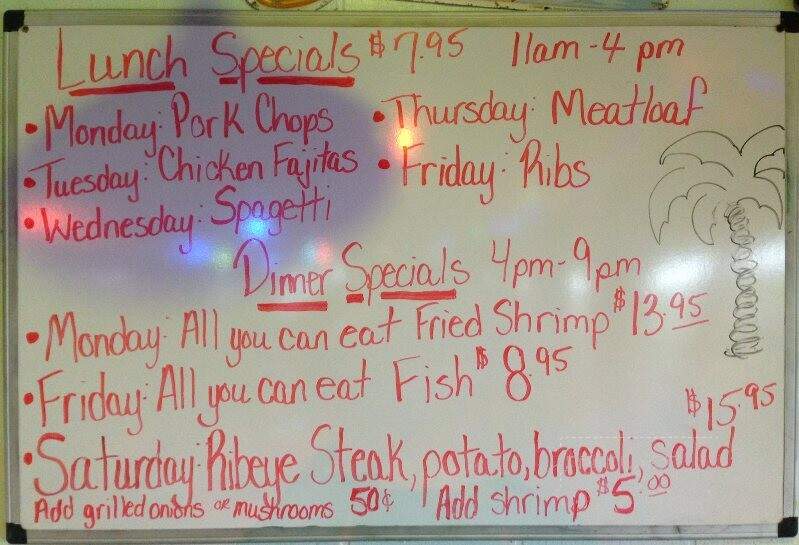 Lunch Specials $7.95 11am-4pm
• Monday: Pork Chops
• Tuesday: Chicken Fajitas
• Wednesday: Spagetti
• Thursday: Meatloaf
• Friday: Ribs
Dinner Specials 4pm-9pm
• Monday: All you can eat Fried Shrimp $13.95
• Friday: All you can eat Fish $8.95
• Saturday: Ribeye Steak, potato, broccoli, salad $15.95
Add grilled onions or mushrooms 50¢ Add shrimp $5.00